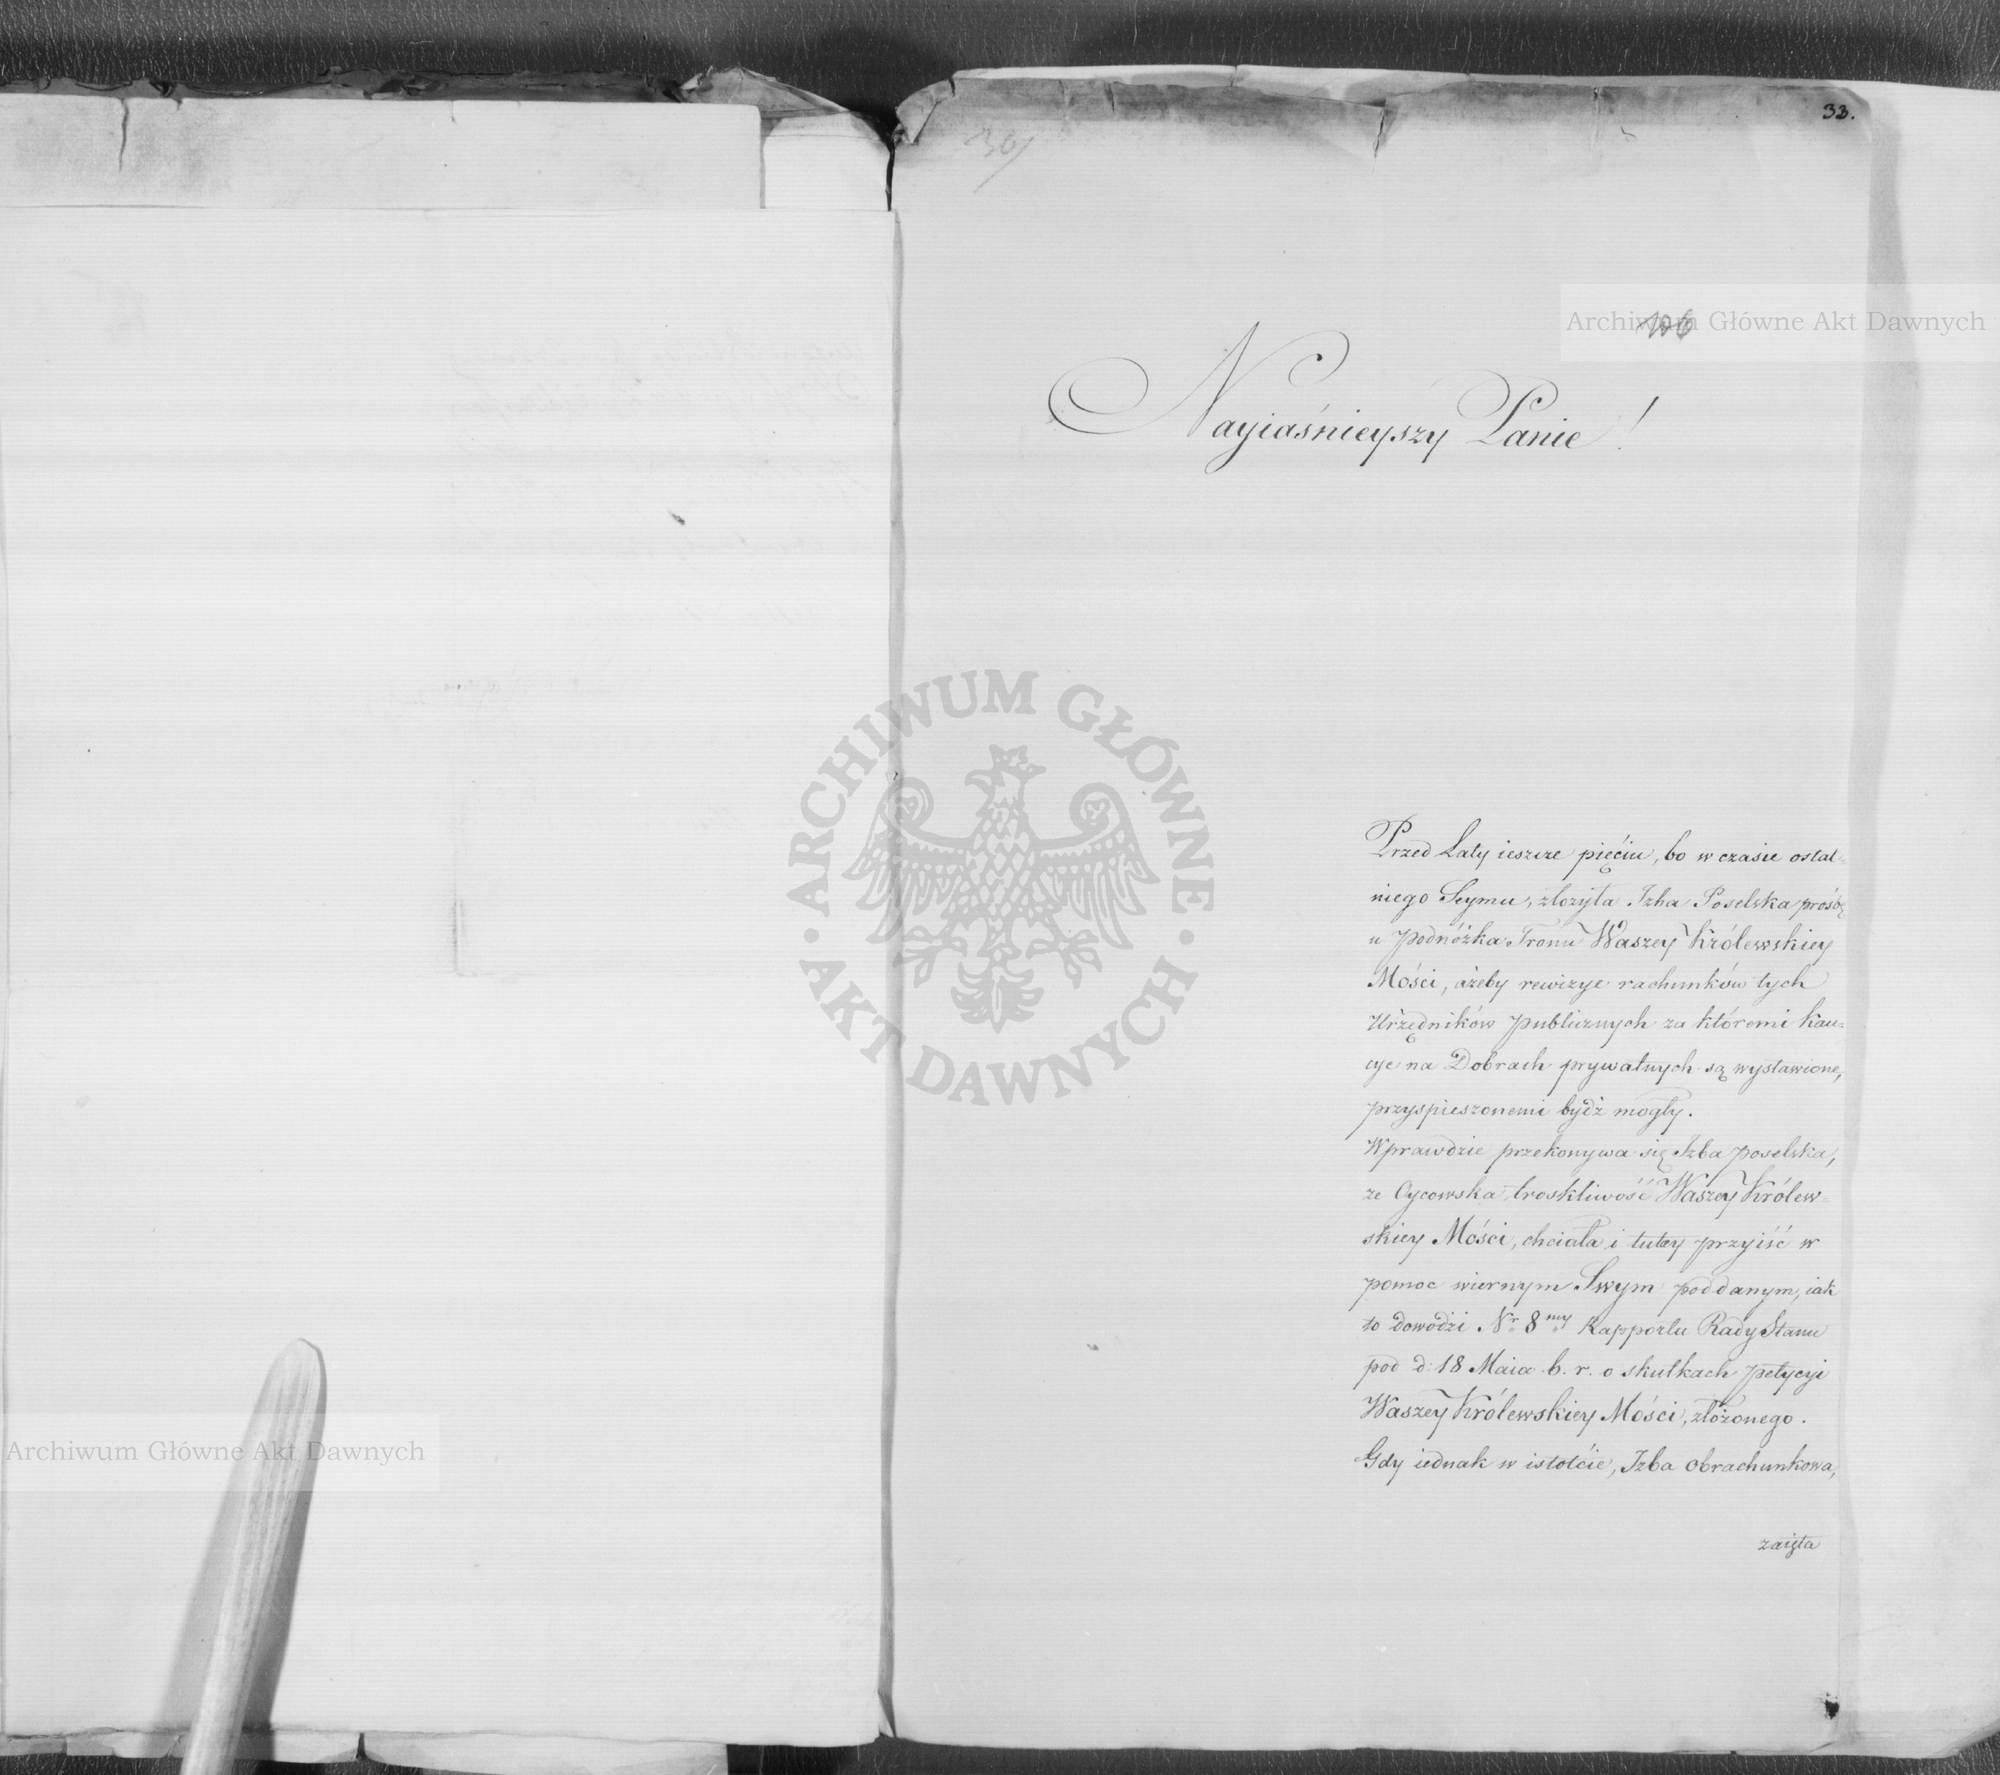 33.
30/
106
Archiwum Główne Akt Dawnych
Nayiaśnieyszy Panie!
ARCHIWUM GŁÓWNE · AKT DAWNYCH ·
Przed Laty ieszcze pięciu, bo w czasie ostat-
niego Seymu, złożyła Izba Poselska prośbę
u Podnóżka Tronu Waszey Królewskiey
Mości, ażeby rewizye rachunków tych
Urzędników publicznych za któremi kau-
cye na Dobrach prywatnych są wystawione,
przyspieszonemi bydź mogły.
Wprawdzie przekonywa się Izba poselska,
że Oycowska troskliwość Waszey Królew-
skiey Mości, chciała i tutay przyiść w
pomoc wiernym Swym poddanym, iak
to dowodzi Nr 8my Rapportu Rady Stanu
pod d. 18 Maia b. r. o skutkach petycyi
Waszey Królewskiey Mości, złożonego.
Gdy iednak w istotcie, Izba Obrachunkowa,
zaięta
Archiwum Główne Akt Dawnych